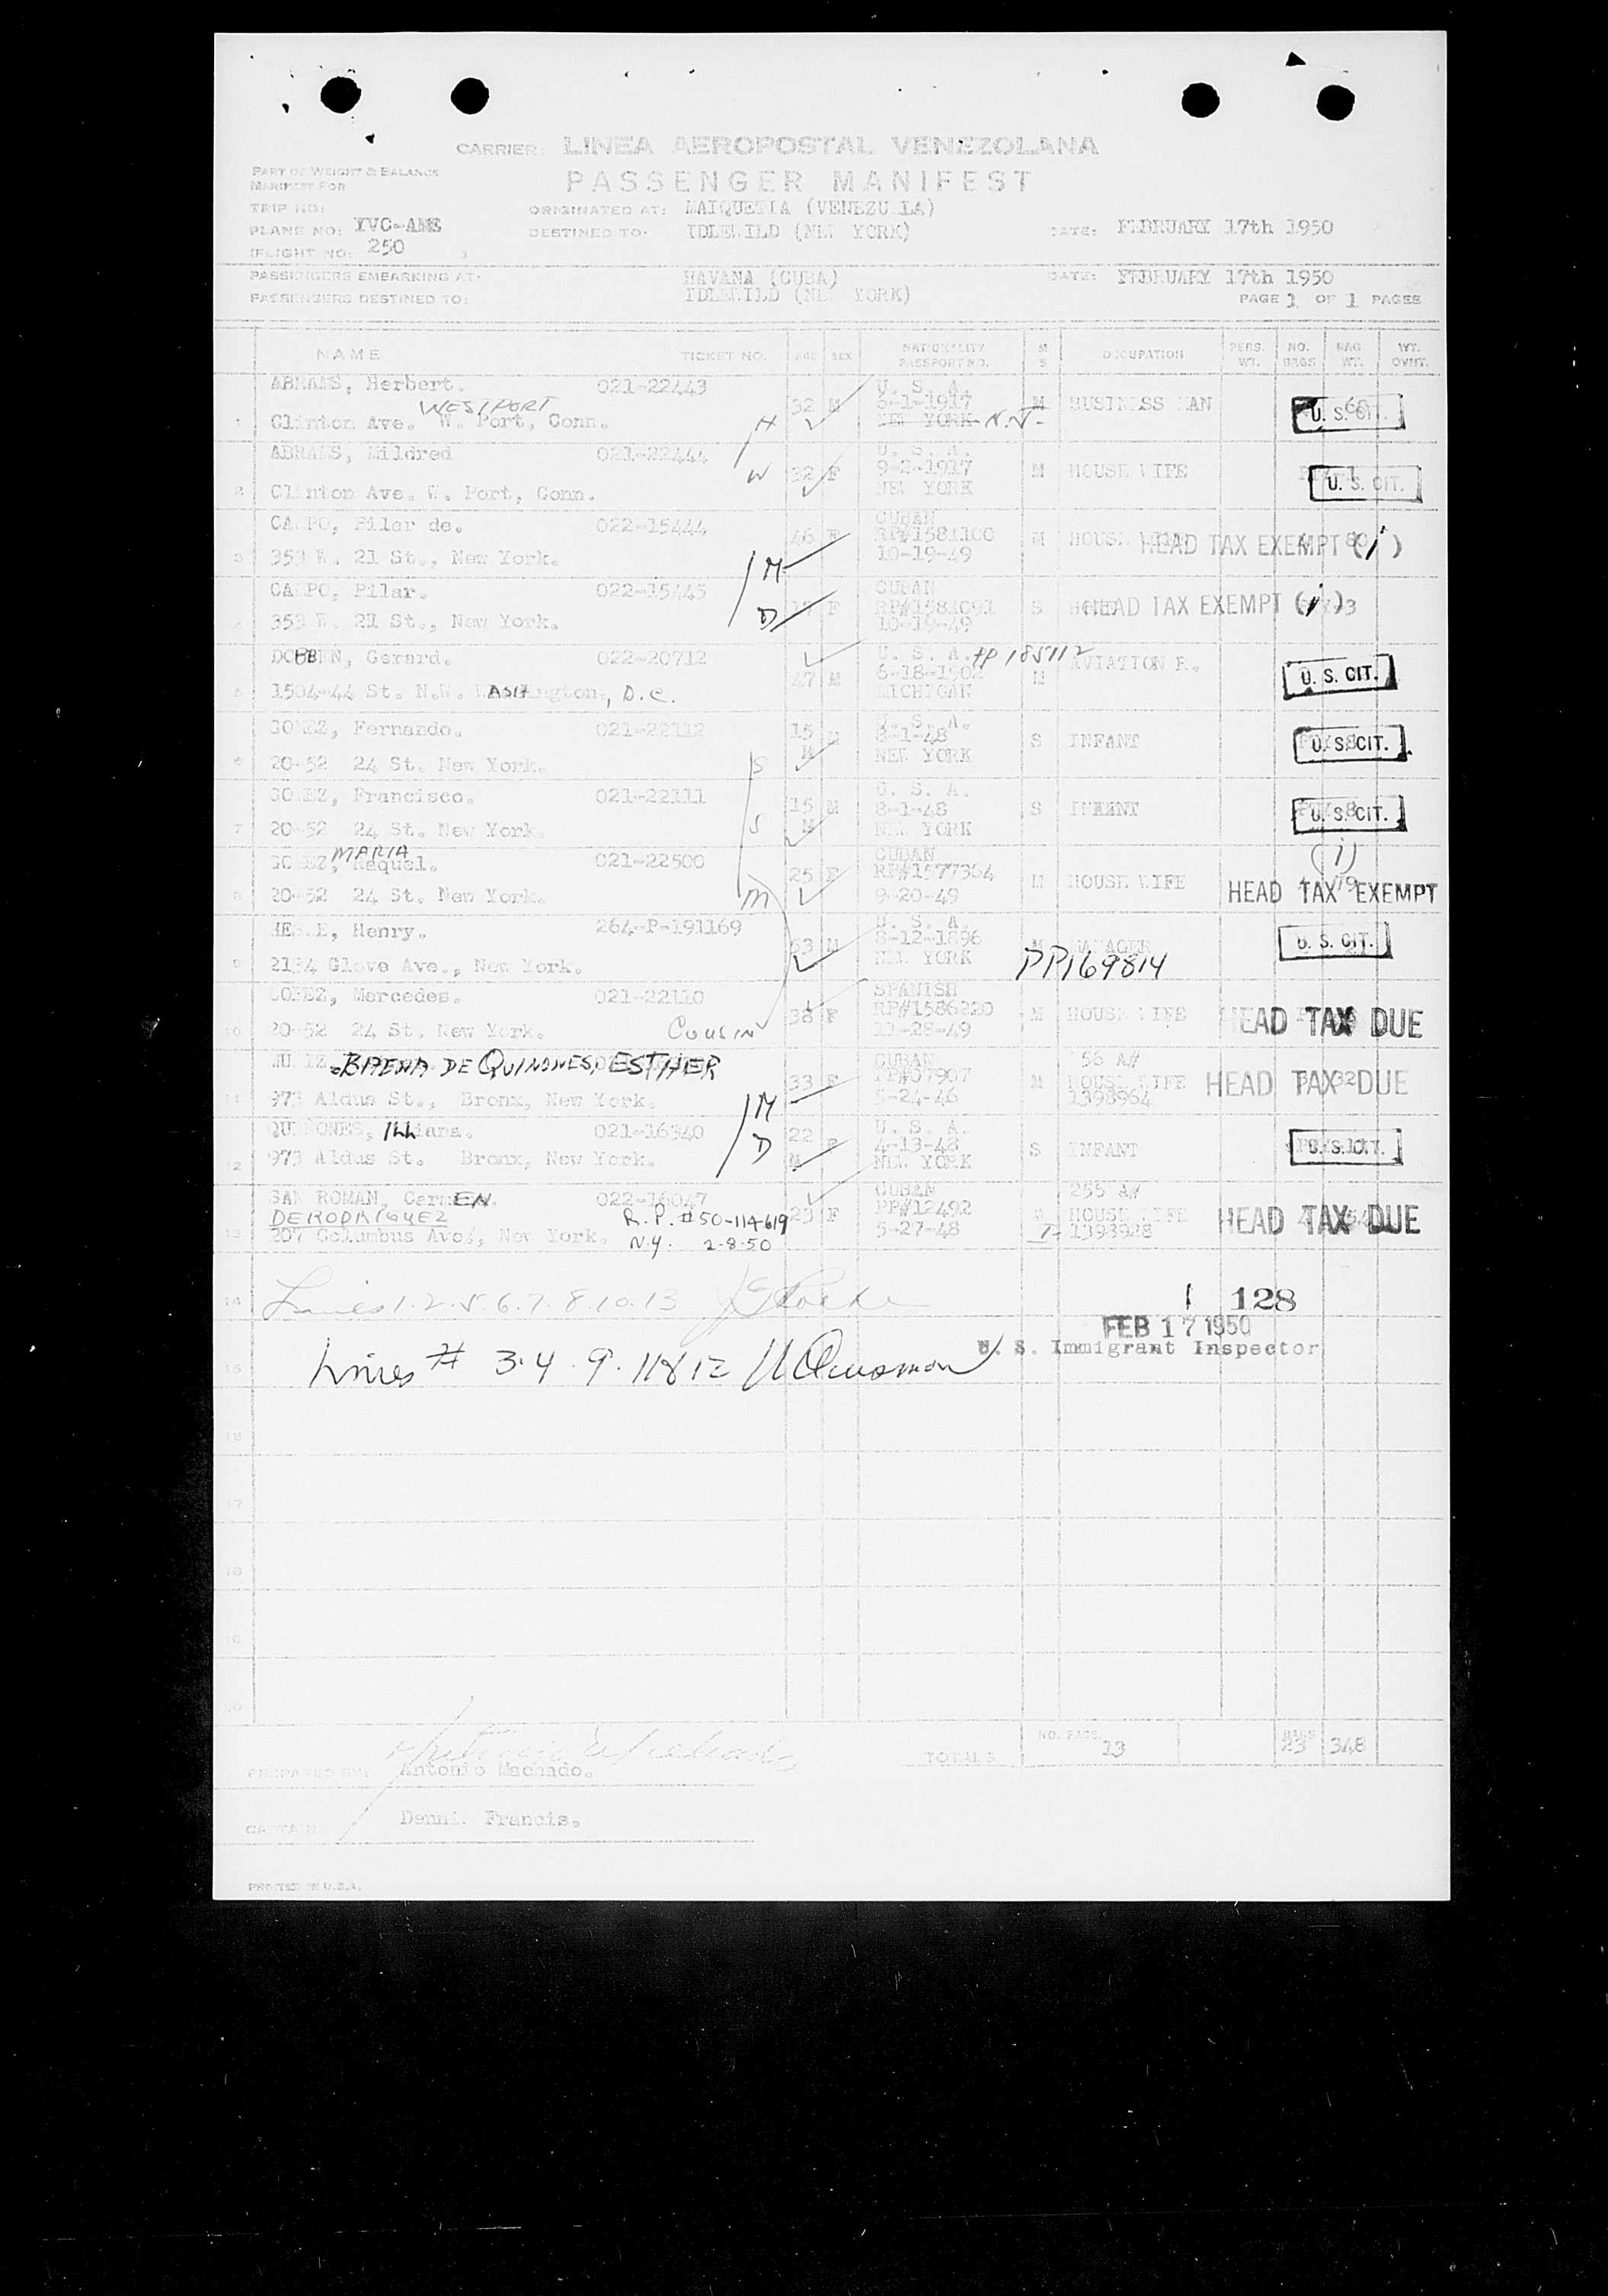 CARRIER: LINEA AEROPOSTAL VENEZOLANA
PART OF WEIGHT & BALANCE
MANIFEST FOR
PASSENGER MANIFEST
TRIP NO:
ORIGINATED AT: MAIQUETIA (VENEZUELA)
PLANE NO: YVC-AMS
DESTINED TO: IDLEWILD (NEW YORK)
DATE: FEBRUARY 17th 1950
(FLIGHT NO: 250 )
PASSENGERS EMBARKING AT: HAVANA (CUBA) DATE: FEBRUARY 17th 1950
PASSENGERS DESTINED TO: IDLEWILD (NEW YORK) PAGE 1 OF 1 PAGES
NAME TICKET NO. AGE SEX NATIONALITY PASSPORT NO. M S OCCUPATION PERS. WT. NO. BAGS BAG WT. WT. OVWT.
ABRAMS, Herbert. 021-22443 U. S. A.
WESTPORT 32 M 8-1-1917 M BUSINESS MAN 68 U. S. CIT.
1 Clinton Ave. W. Port, Conn. H NEW YORK N.J.
ABRAMS, Mildred 021-22444 U. S. A.
W 32 F 9-2-1917 M HOUSE WIFE U. S. CIT.
2 Clinton Ave. W. Port, Conn. NEW YORK
CAMPO, Pilar de. 022-15444 CUBAN
46 F RP#1581100 M HOUSE WIFE HEAD TAX EXEMPT (i)
3 353 W. 21 St., New York. M 10-19-49
CAMPO, Pilar. 022-15445 CUBAN
17 F RP#1581091 S HEAD TAX EXEMPT (i)
4 353 W. 21 St., New York. D 10-19-49
DOBBEN, Gerard. 022-20712 U. S. A. PP 185112
47 M 6-18-1902 M AVIATION R. U. S. CIT.
5 1504-44 St. N.W. Washington, D.C. MICHIGAN
GOMEZ, Fernando. 021-22112 15 M U. S. A.
M 8-1-48 S INFANT U. S. CIT.
6 20-52 24 St. New York. S NEW YORK
GOMEZ, Francisco. 021-22111 U. S. A.
15 M 8-1-48 S INFANT U. S. CIT.
7 20-52 24 St. New York. S M NEW YORK
MARIA CUBAN (i)
GOMEZ, Raquel. 021-22500 25 F RP#1577364 M HOUSE WIFE
8 20-52 24 St. New York. M 9-20-49 HEAD TAX EXEMPT
HESSE, Henry. 264-P-191169 U. S. A.
53 M 8-12-1896 M MANAGER U. S. CIT.
9 2134 Glove Ave., New York. NEW YORK PP169814
LOPEZ, Mercedes. 021-22110 SPANISH
38 F RP#1586220 M HOUSE WIFE HEAD TAX DUE
10 20-52 24 St. New York. COUSIN 11-28-49
BAENA DE QUINONES, ESTHER CUBAN 56 A#
33 F PP#07907 M HOUSE WIFE HEAD TAX DUE 32
11 973 Aldus St., Bronx, New York. M 5-24-46 1398964
QUINONES, Illiana. 021-16340 22 F U. S. A.
D M 4-13-48 S INFANT U. S. CIT.
12 973 Aldus St. Bronx, New York. NEW YORK
SAN ROMAN, CarmEN 022-16047 CUBAN 255 A#
DE RODRIGUEZ R.P. #50-114619 23 F PP#12492 M HOUSE WIFE HEAD TAX DUE
13 207 Columbus Ave., New York. N.Y. 2-8-50 5-27-48 I- 1393928
14 Lines 1.2.5.6.7.8.10.13 1 128
FEB 17 1950
U. S. Immigrant Inspector
15 Lines # 3.4.9.11&12
16
17
18
19
20
TOTALS NO. PASS. 13 BAGS 23 348
PREPARED BY: Antonio Machado.
CAPTAIN: Denni. Francis.
PRINTED IN U.S.A.